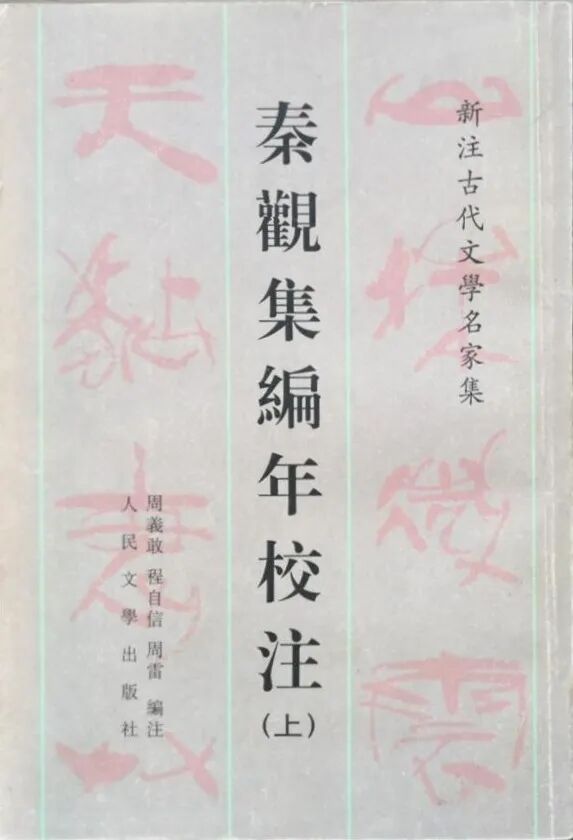 新注古代文學名家集
秦觀集編年校注
（上）
周義敢 程自信 周雷 編注
人民文學出版社
山抹微雲
天黏衰草